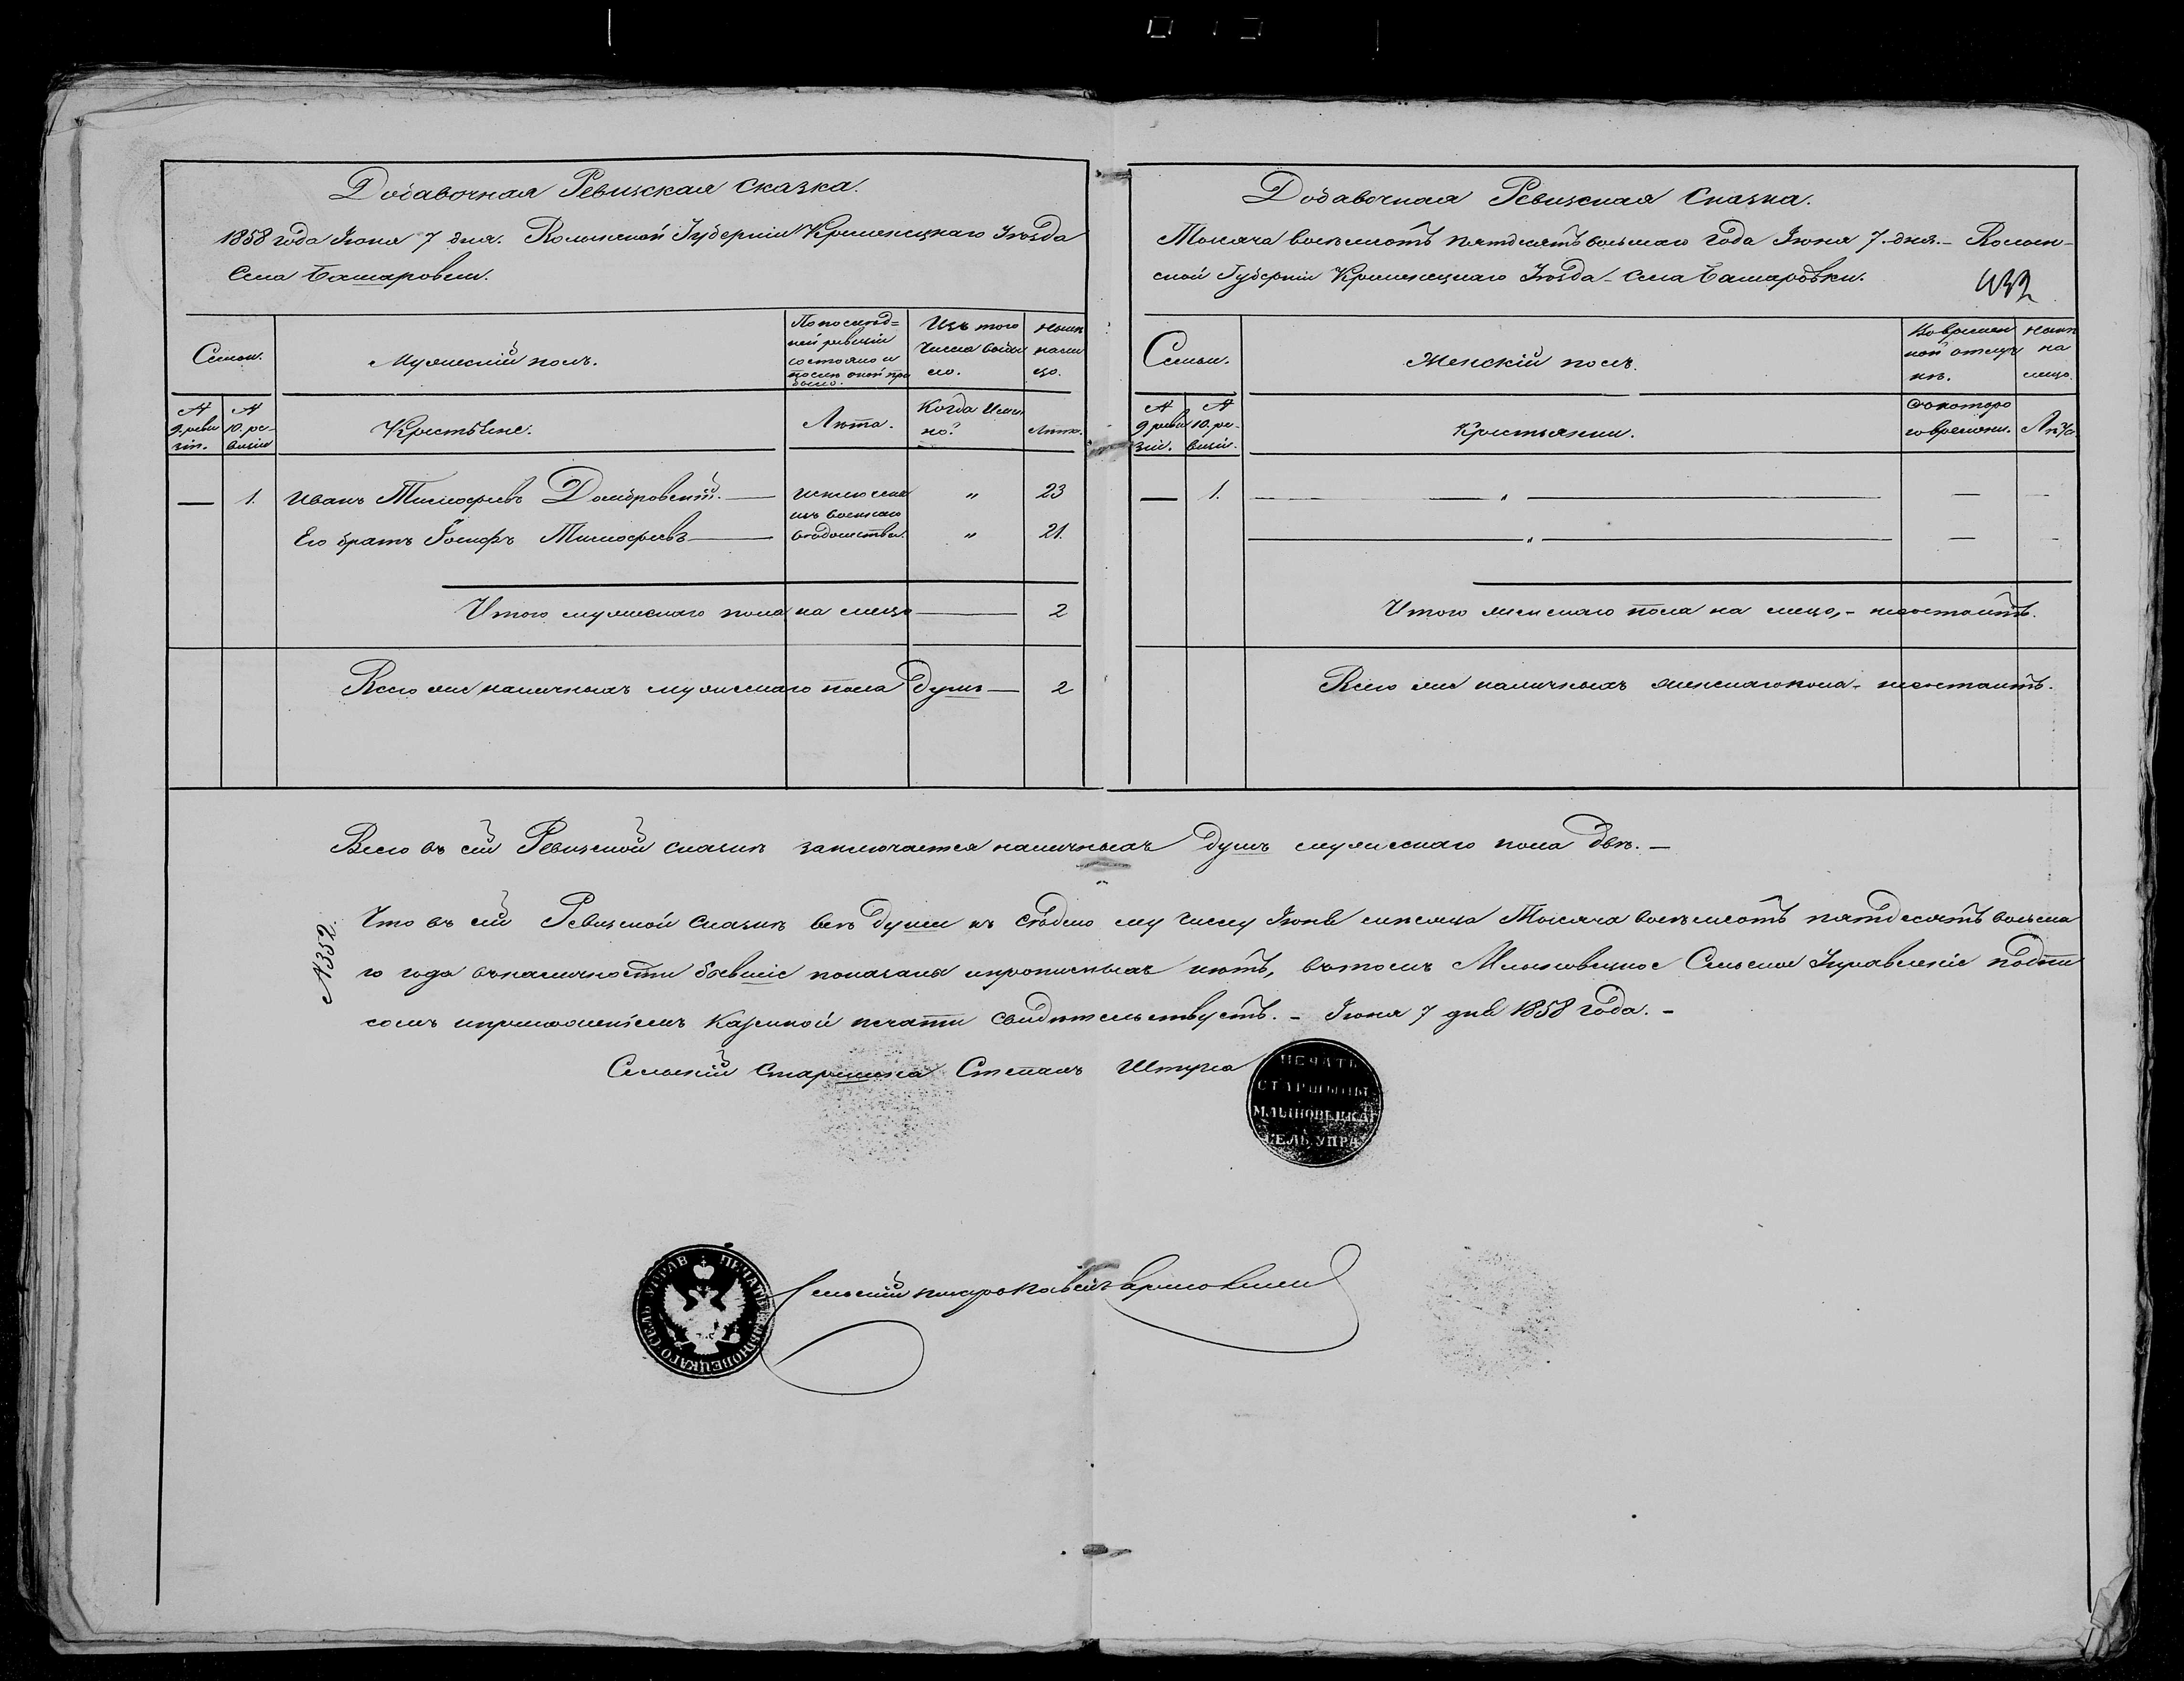 Добавочная Ревизская сказка.
1858 года Іюня 7 дня. Волынской Губерніи Кременецкаго Уѣзда
Села Башаровки.
Семьи.
Мужескій полъ.
По послѣд=
ней ревизіи
состояло и
послѣ оной при
было.
Изъ того
числа выбы
ло.
Нынѣ
на ли
цо.
№
9. реви
зіи.
№
10. ре-
визіи
Крестьяне.
Лѣта.
Когда имен
но?
Лѣта.
— 1. Иванъ Тимофеевъ Домбровскій. — исключены „ 23
изъ военнаго
Его братъ Іосифъ Тимофеевъ — вѣдомства. „ 21.
Итого мужескаго пола на лицо — 2
Всего же наличныхъ мужескаго пола душъ — 2
Добавочная Ревизская Сказка.
Тысяча восемьсотъ пятдесятъ восьмаго года Іюня 7. дня. – Волын-
ской Губерніи Кременецкаго Уѣзда – села Башаровки.
432
Семьи.
Женскій полъ.
Во времен
ной отлуч
кѣ.
Нынѣ
на
лицо.
№
9 реви
зіи.
№
10. ре-
визіи.
Крестьянки.
Съ которо
го времени.
Лѣта.
— 1. — „ — — —
— „ — — —
Итого женскаго пола на лицо, – несостоитъ.
Всего же наличныхъ женскаго пола – несостоитъ.
Всего въ сей Ревизской сказкѣ заключается наличныхъ душъ мужескаго пола двѣ. —
№ 352.
Что въ сей Ревизской сказкѣ всѣ души къ седьмо му числу Іюня мѣсяца Тысяча восемьсотъ пятдесятъ восьма
го года въ наличности бывшіе показаны и прописныхъ нѣтъ, въ томъ Млыновецкое Сельское Управленіе подпи
сомъ и приложеніемъ казенной печати свидѣтельствуетъ. – Іюня 7 дня 1858 года. –
Сельскій Старшина Степанъ
ПЕЧАТЬ
СТАРШИНЫ
МЛЫНОВЕЦКАГ
СЕЛЬ. УПРА
ПЕЧАТЬ МЛЫНОВЕЦКАГО СЕЛЬ. УПРАВ
Сельскій писарь